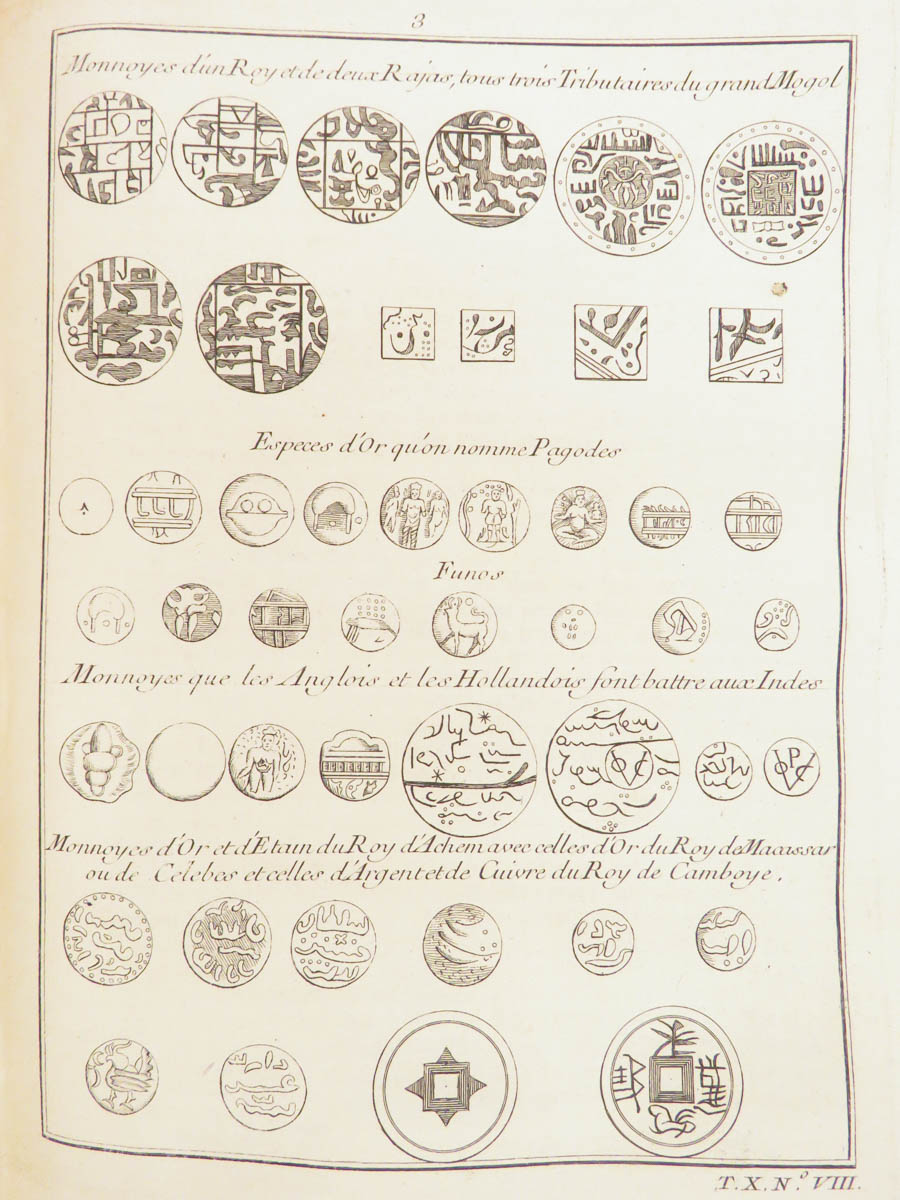 3
Monnoyes d'un Roy et de deux Rajas, tous trois Tributaires du grand Mogol
Especes d'Or qu'on nomme Pagodes
Funos
Monnoyes que les Anglois et les Hollandois font battre aux Indes
Monnoyes d'Or et d'Etain du Roy d'Achem avec celles d'Or du Roy de Macassar
ou de Célebes et celles d'Argent et de Cuivre du Roy de Camboye.
T. X. N.º VIII.